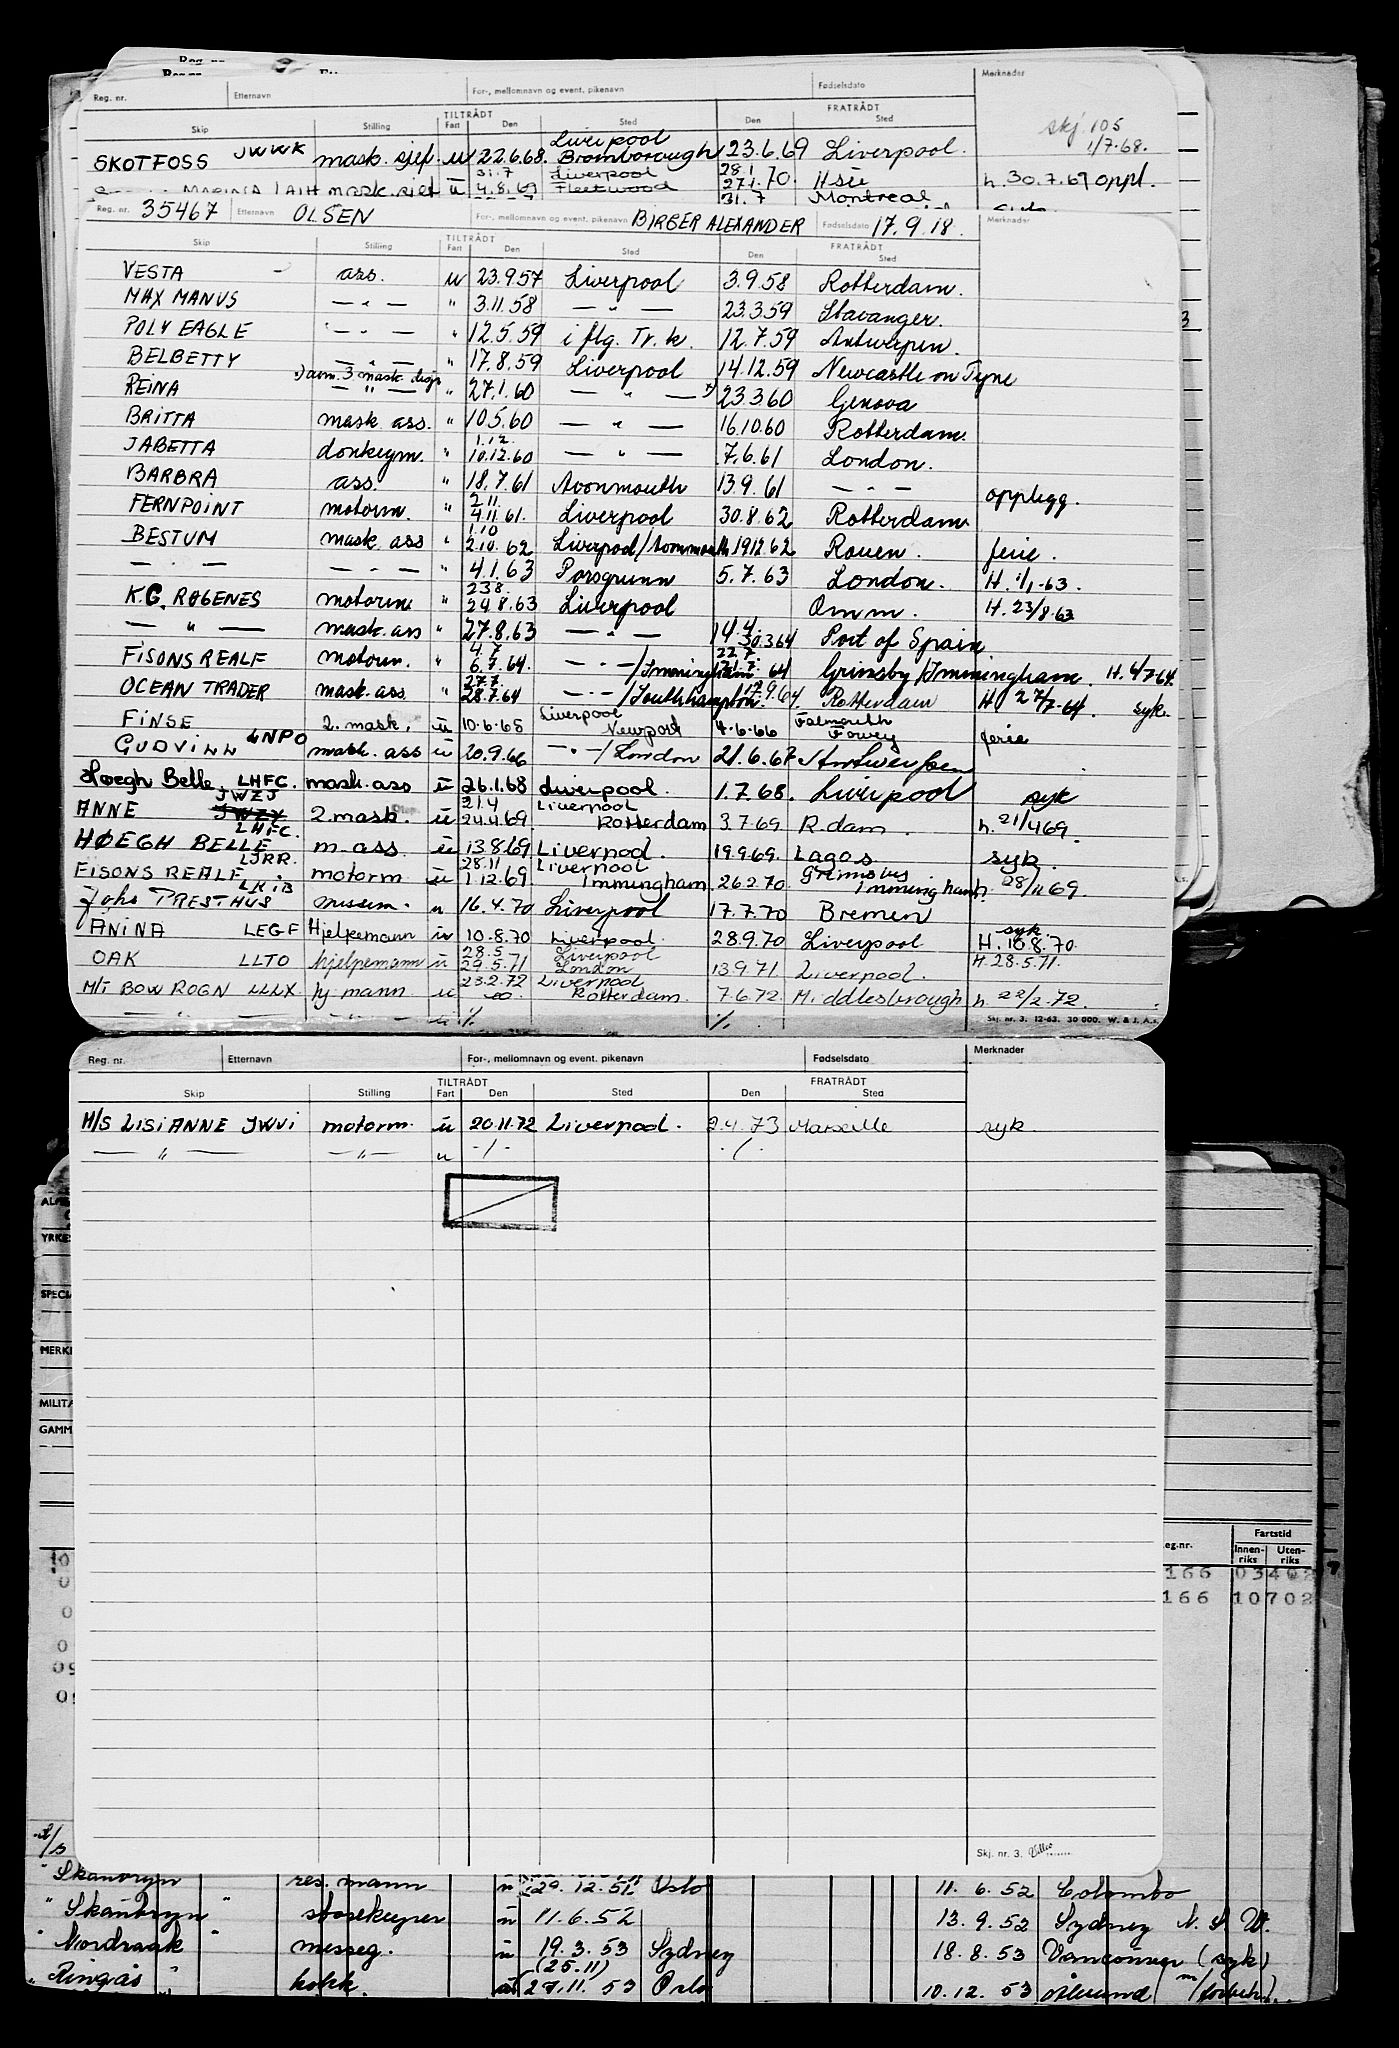 Reg. nr. Etternavn For-, mellomnavn og event. pikenavn Fødselsdato Merknader
TILTRÅDT FRATRÅDT
Skip Stilling Fart Den Sted Den Sted
skj. 105
1/7-68.
SKOTFOSS JWWK mask. sjef. u 22.6.68. Liverpool Bromborough 23.6.69 Liverpool.
31.7 4.8.69 Liverpool Fleetwood 28.1 27.1.70. h. 30.7.69 oppl.
31.7 Montreal
Reg. nr. 35467 Etternavn OLSEN For-, mellomnavn og event. pikenavn BIRGER ALEXANDER Fødselsdato 17.9.18. Merknader
TILTRÅDT FRATRÅDT
Skip Stilling Fart Den Sted Den Sted
VESTA - ass. u 23.9.57 Liverpool 3.9.58 Rotterdam.
MAX MANUS — " — " 3.11.58 — " — 23.3.59 Stavanger.
POLY EAGLE — " — " 12.5.59 i flg. Tr. k. 12.7.59 Antwerpen.
BELBETTY — " — " 17.8.59 Liverpool 14.12.59 Newcastle on Tyne
REINA x) avm. 3 mask. disp — " — " 27.1.60 — " — x) 23.3.60 Genova
BRITTA mask. ass. " 10.5.60 — " — 16.10.60 Rotterdam.
JABETTA donkeym. " 1.12. 10.12.60 — " — 7.6.61 London.
BARBRA ass. " 18.7.61 Avonmouth 13.9.61 — " — opplegg.
FERNPOINT motorm. " 2.11. 4.11.61. Liverpool 30.8.62 Rotterdam
BESTUM mask. ass " 1.10 2.10.62 Liverpool/Avonmouth 19.12.62 Rouen. ferie.
— " — — " — " 4.1.63 Porsgrunn 5.7.63 London. H. 1/1-63.
K.G. ROGENES motorm. 23.8. 24.8.63 Liverpool Omm. H. 23/8-63
— " — mask. ass " 27.8.63 — " — 14.4. 30.3.64 Port of Spain
FISONS REALF motorm. " 4.7 6.7.64. — " — /Immingham 22.7. 21.7.64 Grimsby/Immingham. H. 4/7-64.
OCEAN TRADER mask. ass. " 27.7. 28.7.64 — " — /Southhampton 9.64. Rotterdam H 27/7-64. syk.
FINSE 2. mask. u 10-6-65 Liverpool Newport 4-6-66 Falmouth Fowey ferie
GUDVINN LNPO mask. ass u 20.9.66 — " — /London 21.6.67 Antwerpen
Høegh Belle LHFC. mask. ass u 26.1.68 Liverpool. 1.7.68. Liverpool syk
ANNE JWZJ JWZY 2. mask. u 21.4 24.4.69 Liverpool Rotterdam 3.7.69 R.dam. h. 21/4 69
HØEGH BELLE LHFC. m. ass u 13.8.69 Liverpool. 19.9.69. Lagos syk.
FISONS REALF LJRR. motorm u 28.11 1.12.69 Liverpool Immingham 26.2.70 Grimsby Immingham h. 28/11 69.
John PRESTHUS LKIB u 16.4.70 Liverpool 17.7.70 Bremen
ANINA LEGF Hjelpemann u 10.8.70 Liverpool. 28.9.70 Liverpool syk. H. 10.8.70.
OAK LLTO hjelpemann u 28.5 29.5.71 Liverpool London 13.9.71 Liverpool. H. 28.5.71.
M/T BOW ROGN LLLX. hj. mann u 23.2.72 Liverpool Rotterdam. 7.6.72 Middlesbrough h 22/2.72.
— " — — " — u ./. ./.
Skj. nr. 3. 12-63. 30 000. W. & J. A.s
Reg. nr. Etternavn For-, mellomnavn og event. pikenavn Fødselsdato Merknader
TILTRÅDT FRATRÅDT
Skip Stilling Fart Den Sted Den Sted
M/S LISIANNE JWVI motorm. u 20.11.72 Liverpool. 2.4.73 Marseille syk.
— " — — " — u ./. ./.
YRKES
SPECI
MERK
MILITÆ
GAMM
Fartstid
eg.nr. Innen-riks Uten-riks
166 03402
166 10702
Skj. nr. 3.
Skanbryn res. mann u 29.12.51 Oslo 11.6.52 Colombo
" Skanbryn " storekeeper u 11.6.52 13.9.52 Sydney N. S. W.
" Nordraak " messeg. u 19.3.53 Sydney 18.8.53 Vancouver (syk)
" Ringås " kokk. (25.11) 27.11.53 Oslo 10.12.53 Ålesund